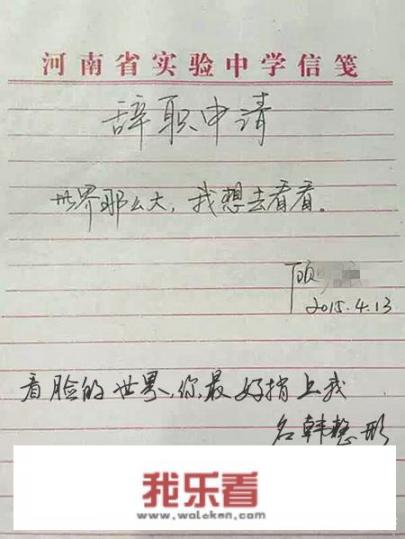 河南省实验中学信笺
辞职申请
世界那么大，我想去看看。
顾
2015.4.13
看脸的世界，你最好捎上我
名韩整形
我乐看
www.waleken.com